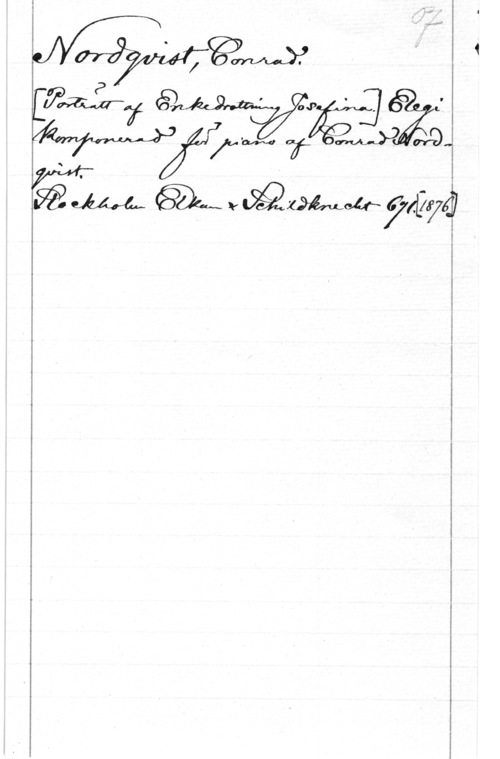 07
Nordqvist, Conrad.
[Porträtt af Enkedrottning Josefina.] Elegi
komponerad för piano af Conrad Nord-
qvist.
Stockholm Elkan & Schildknecht 671. [1876]